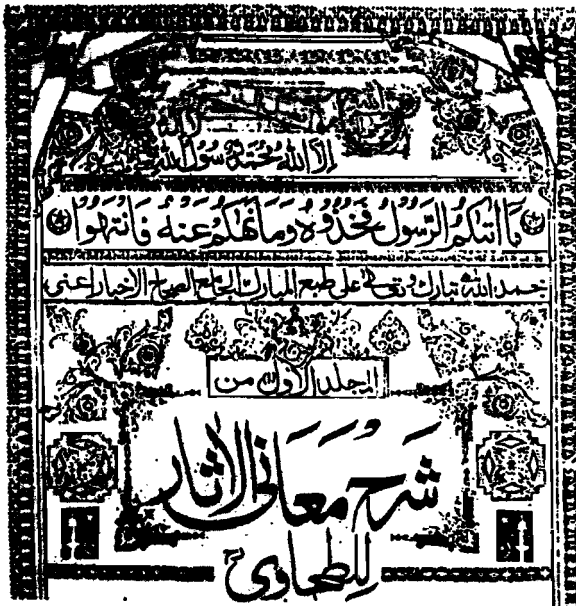 لا إله
إلا الله محمد رسول الله
مَا اٰتٰىكُمُ الرَّسُوْلُ فَخُذُوْهُ وَمَا نَهٰىكُمْ عَنْهُ فَانْتَهُوْا
نحمد الله تبارك وتعالى على طبع المبارك الجامع الصحاح الاخبار اعنى
المجلد الاول من
شَرح مَعَانِي الاثار
للطحاوى